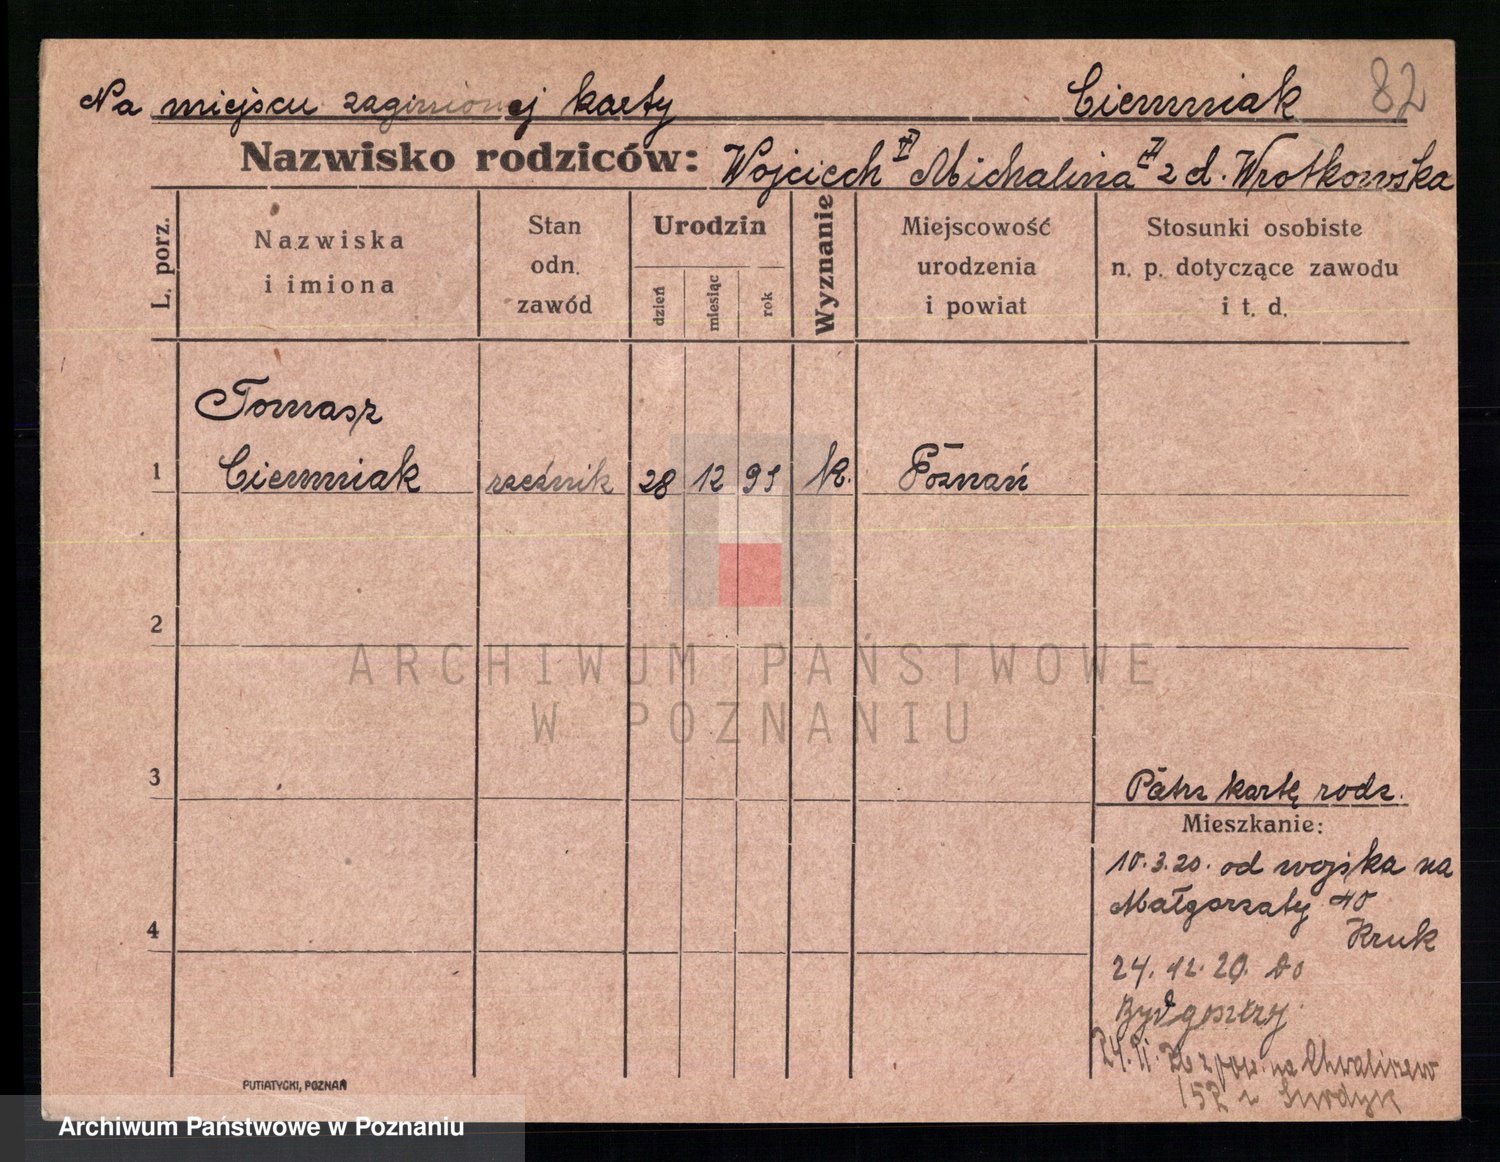 Na miejscu zaginionej karty Ciemniak 82
Nazwisko rodziców: Wojciech Michalina z d. Wrotkowska
L. porz.
Nazwiska
i imiona
Stan
odn.
zawód
Urodzin
dzień
miesiąc
rok
Wyznanie
Miejscowość
urodzenia
i powiat
Stosunki osobiste
n. p. dotyczące zawodu
i t. d.
Tomasz
1 Ciemniak rzeźnik 28 12 95 k. Poznań
2
ARCHIWUM PAŃSTWOWE
W POZNANIU
3
Patrz kartę rodz.
Mieszkanie:
10.3.20. od wojska na
Małgorzaty 40
4
Kruk
24.12.20. do
Bydgoszczy
na Chwaliszew
PUTIATYCKI, POZNAŃ
Archiwum Państwowe w Poznaniu